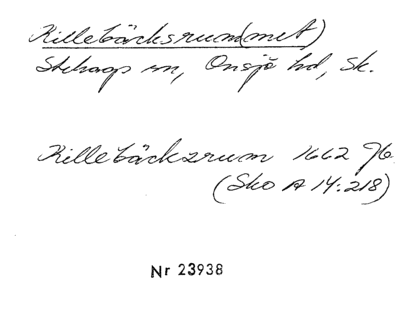 Killebäcksrum(met)
Stehags sn, Onsjö hd, Sk.
Killebäckzrum 1662 Jb.
(Sko A 14:218)
Nr 23938